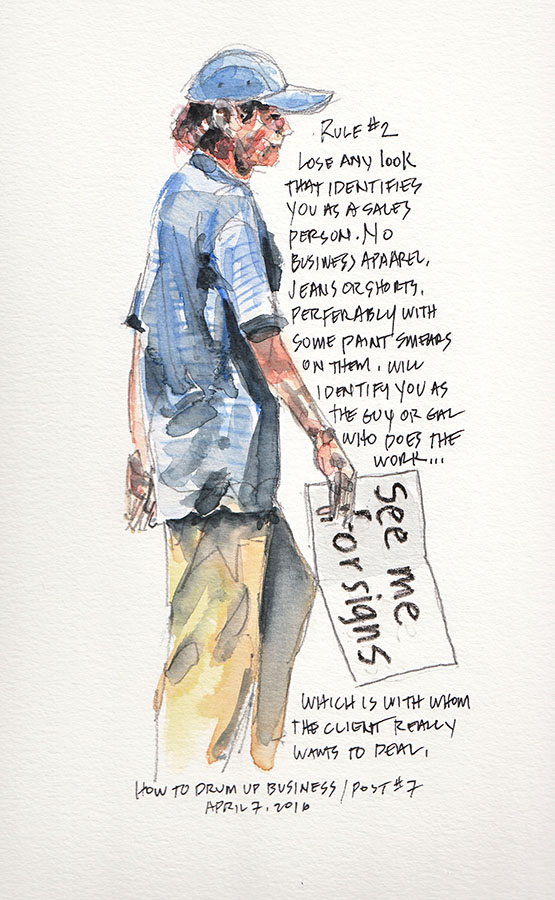 RULE #2
LOSE ANY LOOK
THAT IDENTIFIES
YOU AS A SALES
PERSON. NO
BUSINESS APPAREL.
JEANS OR SHORTS.
PERFERABLY WITH
SOME PAINT SMEARS
ON THEM. WILL
IDENTIFY YOU AS
THE GUY OR GAL
WHO DOES THE
WORK...
see me
for signs
WHICH IS WITH WHOM
THE CLIENT REALLY
WANTS TO DEAL.
HOW TO DRUM UP BUSINESS / POST #7
APRIL 7, 2016